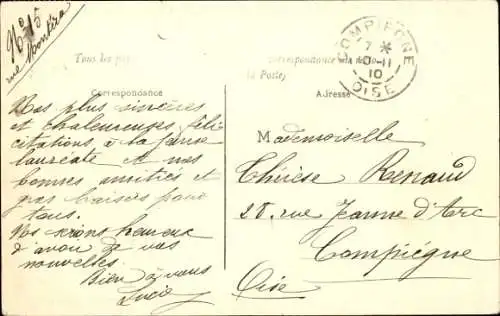 No 15
rue Montéra
Tous les pa
correspondance
la Poste)
COMPIEGNE
7 *
0-11
10
OISE
Correspondance
Adresse
Nos plus sincères
et chaleureuses féli
citations à la jeune
lauréate et nos
bonnes amitiés et
gros baisers pour
tous.
Nos serons heureux
d'avoir de vos
nouvelles.
Bien à vous
Lucie
Mademoiselle
Thérèse Renaud
28 rue Jeanne d'Arc
Compiégne
Oise